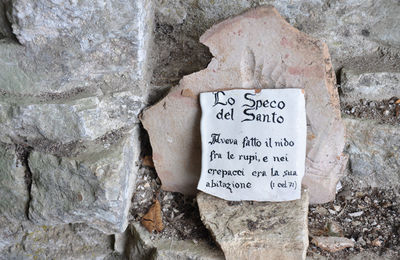 Lo Speco
del Santo
Aveva fatto il nido
fra le rupi, e nei
crepacci era la sua
abitazione (1 cel. 71)